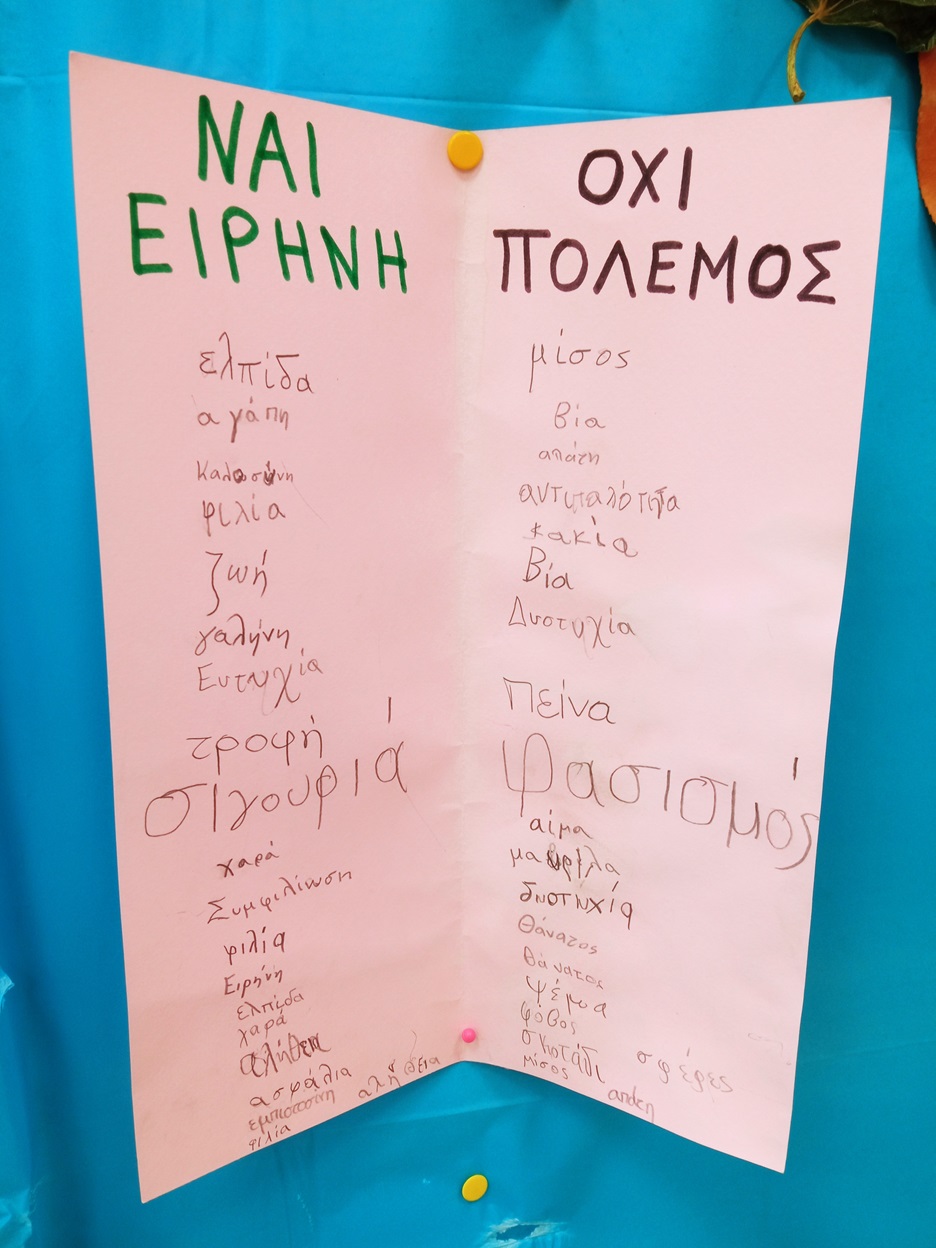 ΝΑΙ
ΕΙΡΗΝΗ
ελπίδα
αγάπη
Καλοσύνη
φιλία
ζωή
γαλήνη
Ευτυχία
τροφή
σιγουριά
χαρά
Συμφιλίωση
φιλία
Ειρήνη
ελπίδα
χαρά
ασφάλια
αλήθεια
φιλία
ΟΧΙ
ΠΟΛΕΜΟΣ
μίσος
Βία
απάτη
κακία
Βία
Δυστυχία
Πείνα
Φασισμός
αίμα
μαυρίλα
δυστυχία
Θάνατος
θάνατος
ψέμα
φόβος
σκοτάδι
σφέρες
μίσος
απάτη